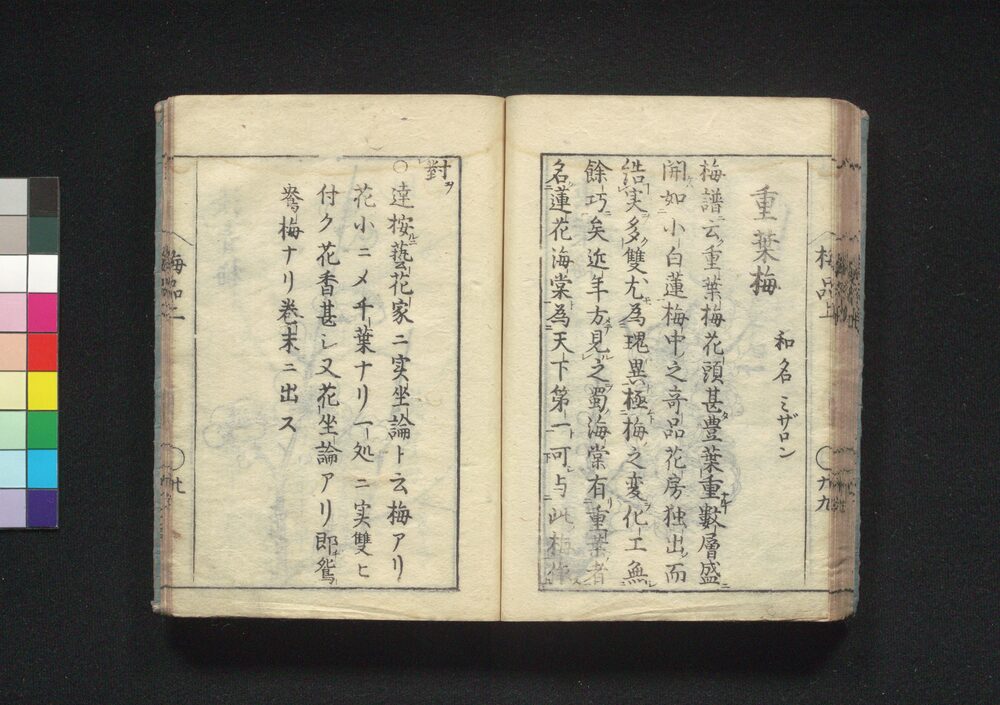 重葉梅
和名 ミザロン
梅譜云重葉梅花頭甚豊葉重數層盛
開如小白蓮梅中之奇品花房独出而
結実多雙尤為瑰異極梅之変化工無
餘巧矣近年方見之蜀海棠有重葉者
名蓮花海棠為天下第一可与此梅作
對ヲ
○達按藝花家ニ実坐論ト云梅アリ
花小ニメ千葉ナリ一処ニ実雙ヒ
付ク花香甚シ又花坐論アリ即鴛
鴦梅ナリ巻末ニ出ス
梅品上
十九
梅品二
七